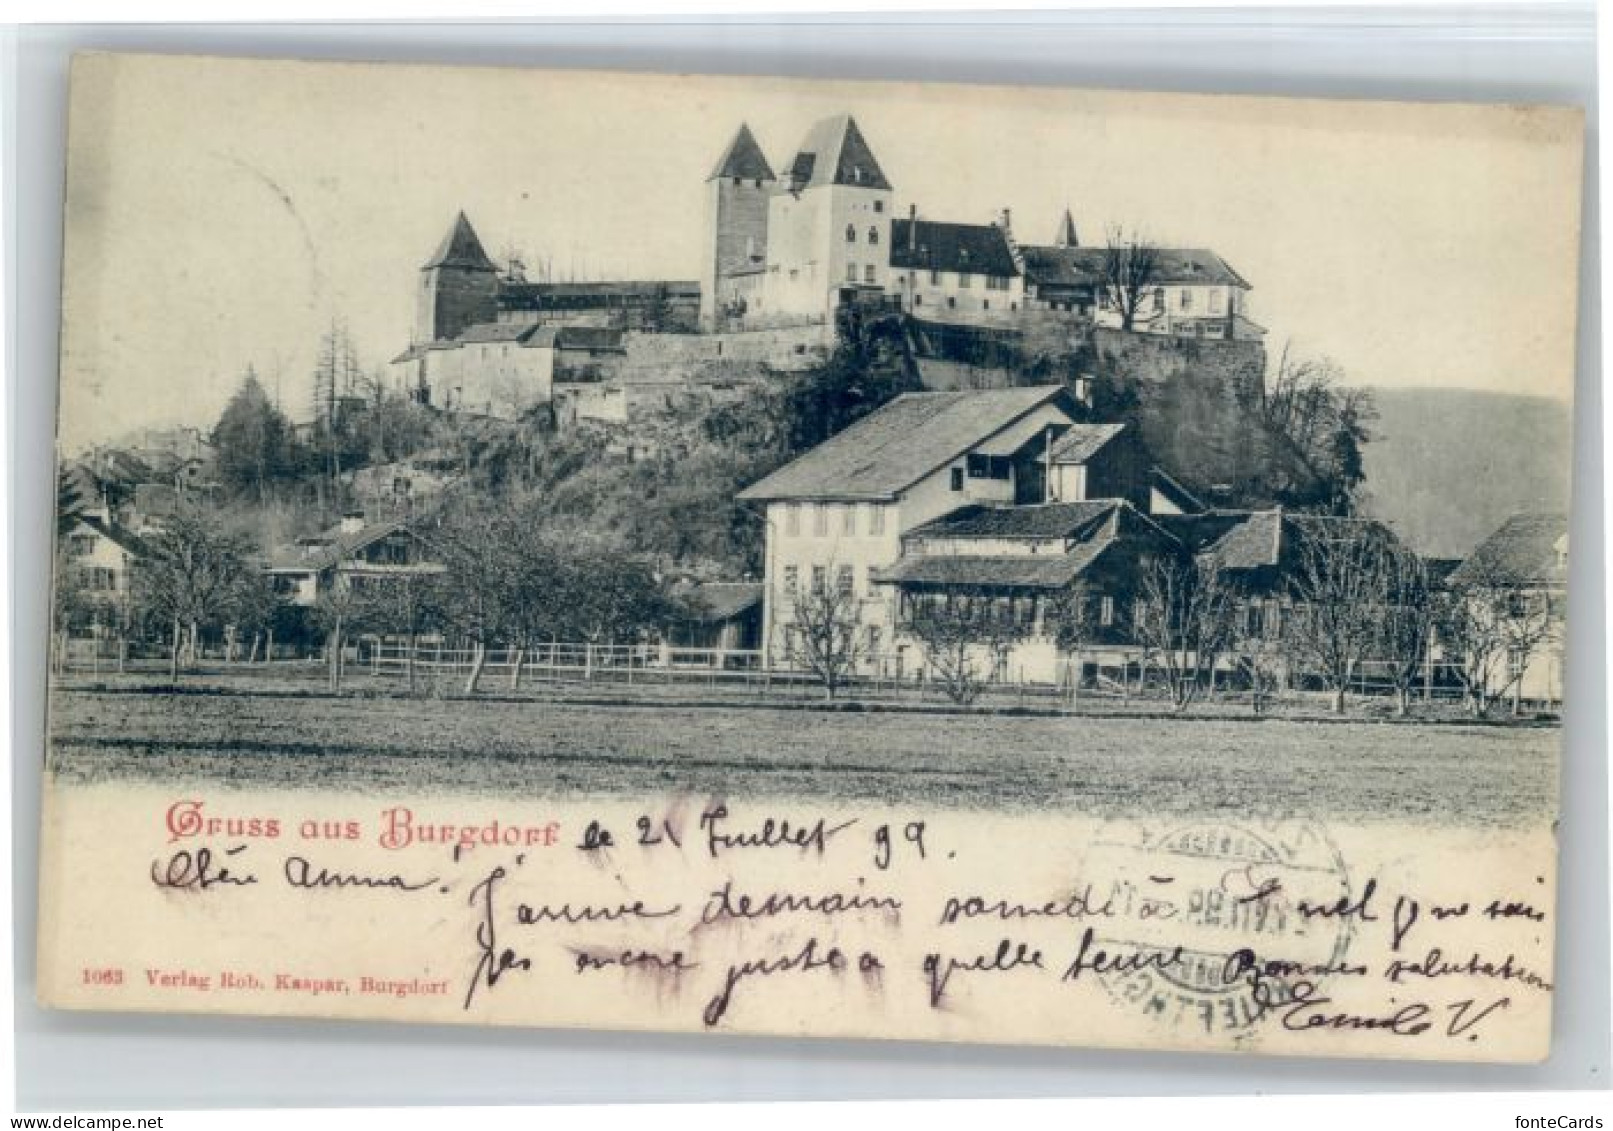 Gruss aus Burgdorf le 21 Juillet 99.
Chère Anna. J'arrive demain samedi à
que je ne sais
pas encore juste a quelle heure Bonnes salutations
1063 Verlag Rob. Kaspar, Burgdorf
Emile V.
delcampe.net
fonteCards